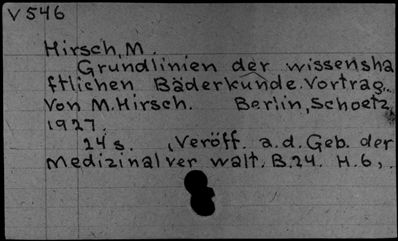 V 546
Hirsch, M.
Grundlinien der wissensha
ftlichen Bäderkunde. Vortrag.
Von M. Hirsch. Berlin, Schoetz,
1927.
24 s. , Veröff. a. d. Geb. der
Medizinal ver walt. B. 24. H. 6,